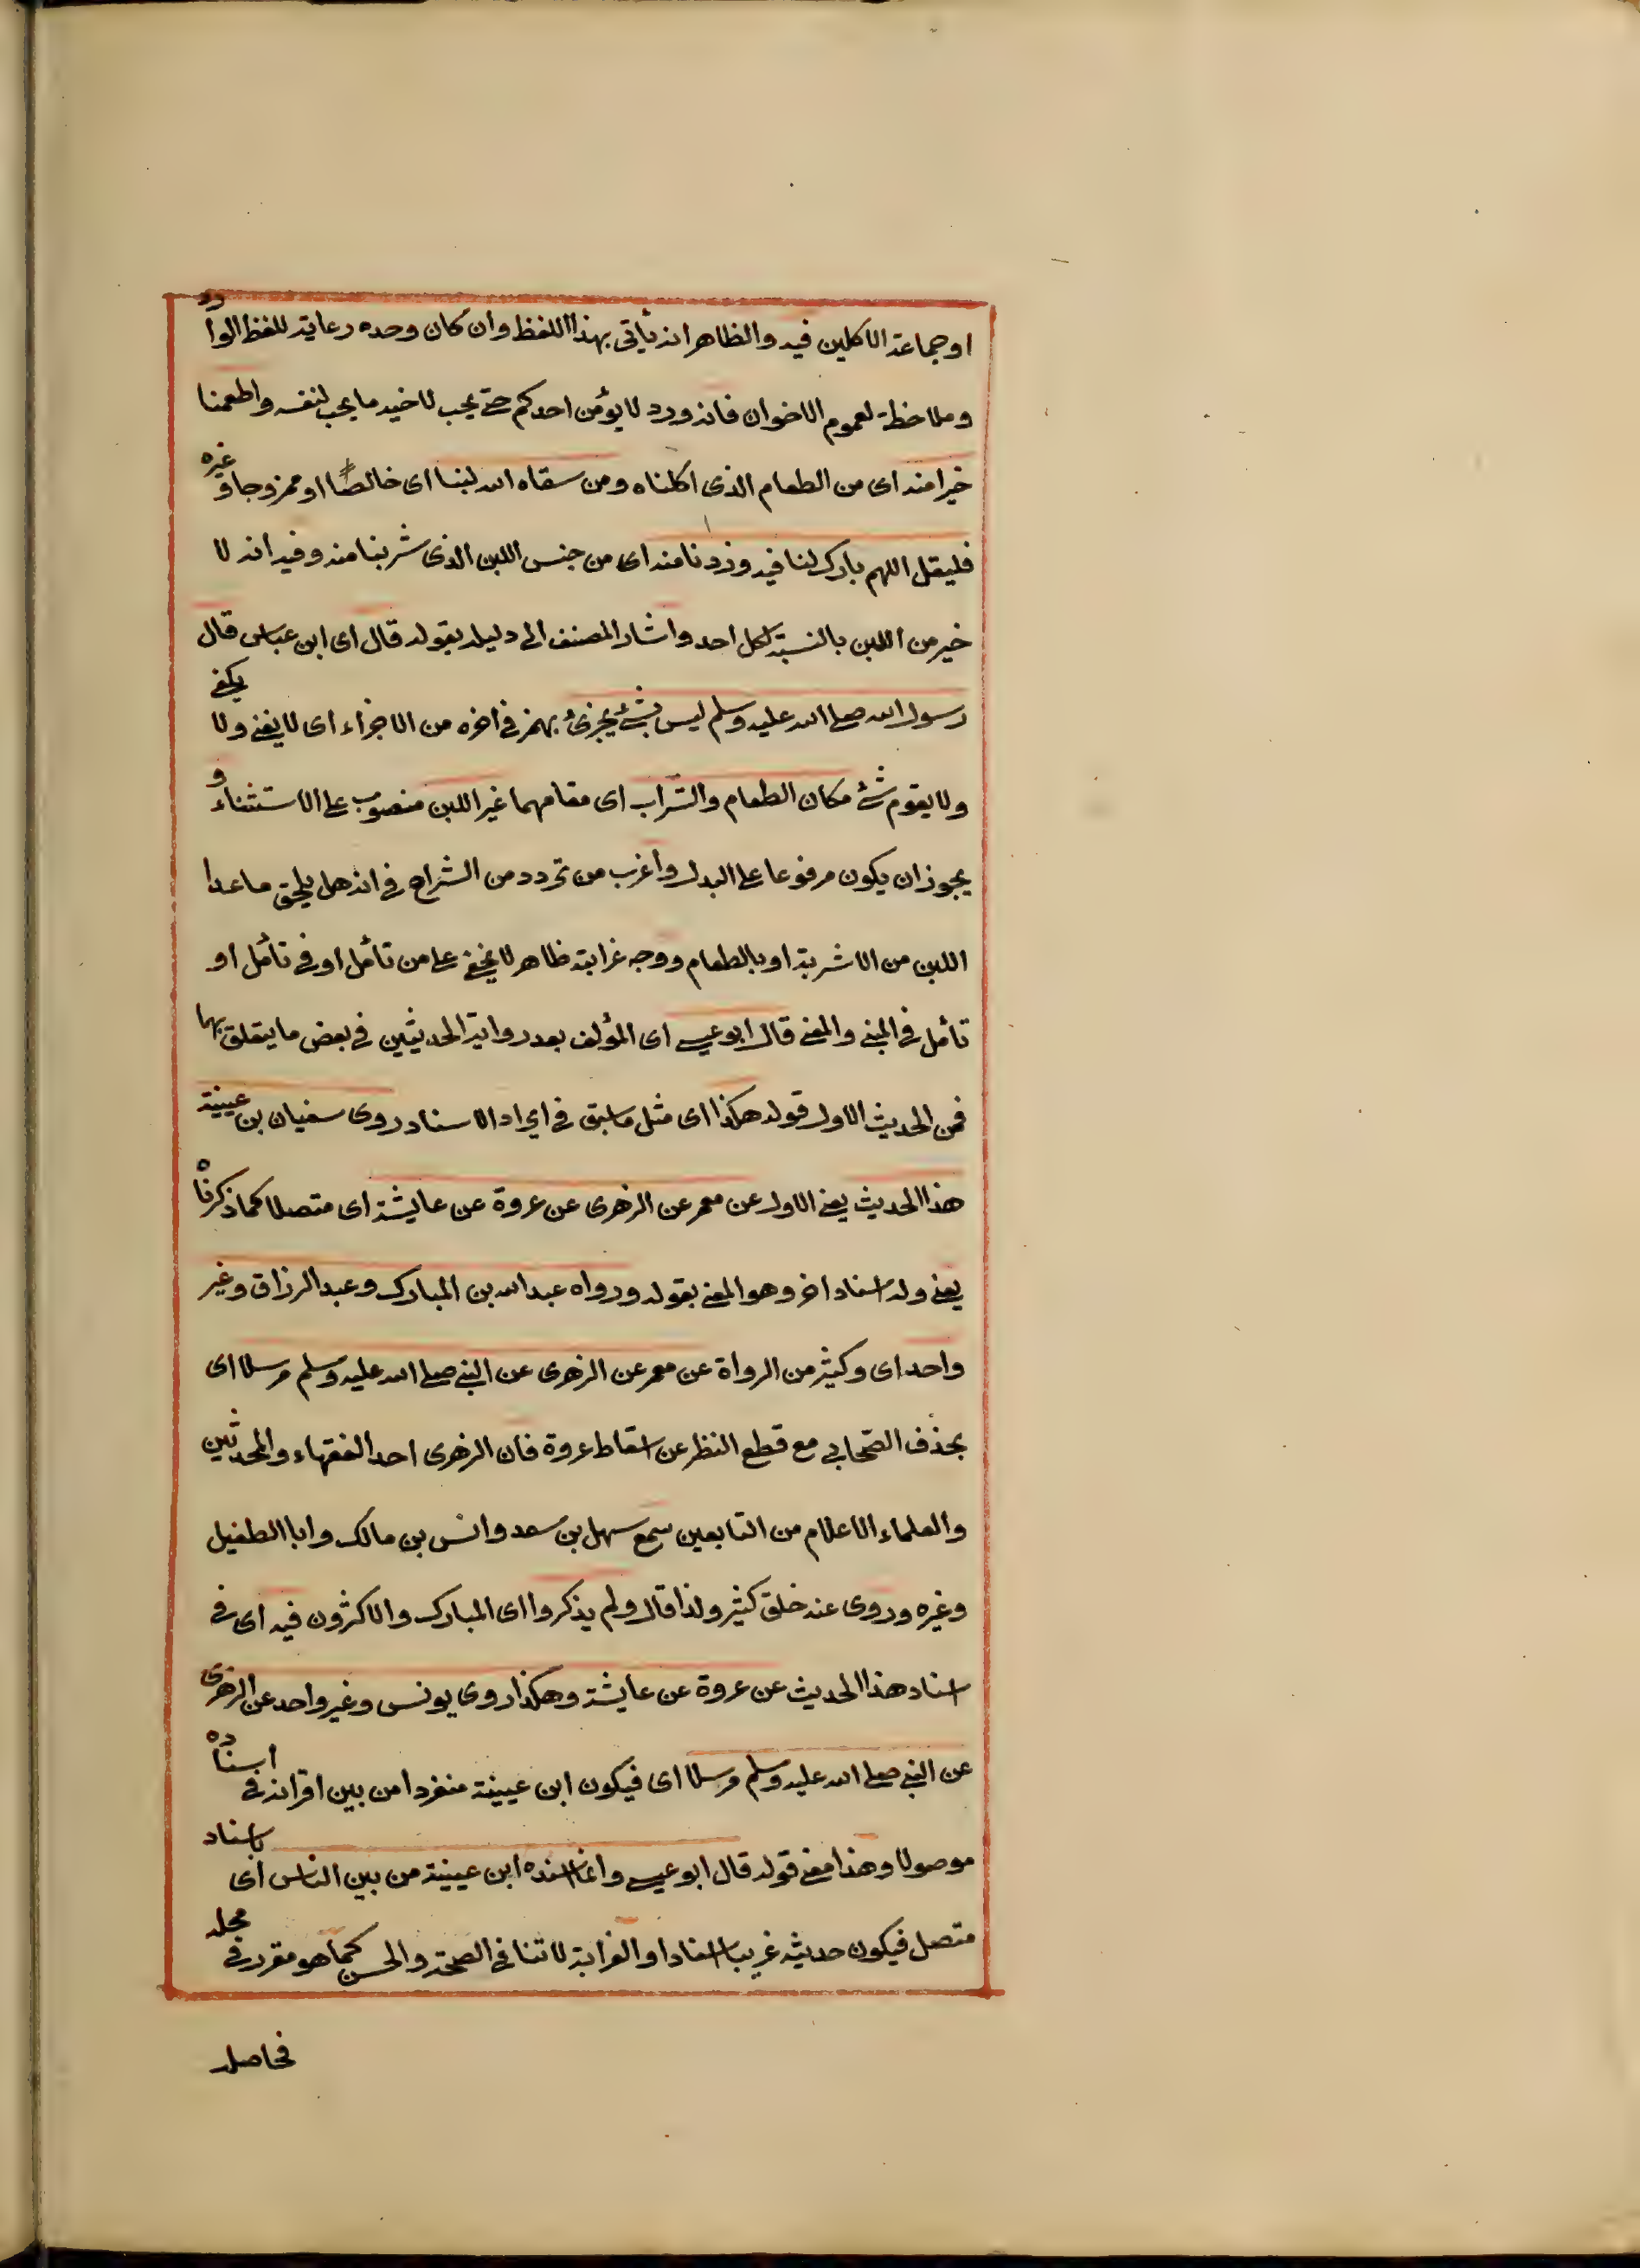 او جماعة الاكلين فيه والظاهر انه يأتى بهذا اللفظ وان كان وحده رعاية للفظ الوارد
وملاحظة لعموم الاخوان فانه ورد لا يؤمن احدكم حتى يحب لاخيه ما يحب لنفسه واطعمنا
خيرا منه اى من الطعام الذى اكلناه ومن سقاه الله لبنا اى خالصًا او ممزوجا وغيره
فليقل اللهم بارك لنا فيه وزدنا منه اى من جنس اللبن الذى شربنا منه وفيه انه لا
خير من اللبن بالنسبة لكل احد واشار المصنف الى دليله بقوله قال اى ابن عباس قال
رسول الله صلى الله عليه وسلم ليس شئ يجزئ بهمز فى اخره من الاجزاء اى لا يغنى ولا يكفى
ولا يقوم شئ مكان الطعام والشراب اى مقامهما غير اللبن منصوب على الاستثناء و
يجوز ان يكون مرفوعا على البدل وأغرب من تردد من الشراح فى انه هل يلحق ما عدا
اللبن من الاشربة او بالطعام ووجه غرابته ظاهر لا يخفى على من تأمل او فى تأمل او
تأمل فى المبنى والمعنى قال ابو عيسى اى المؤلف بعد رواية الحديثين فى بعض ما يتعلق بهما
فمن الحديث الاول قوله هكذا اى مثل ما سبق فى ايراد الاسناد روى سفيان بن عيينة
هذا الحديث يعنى الاول عن معمر عن الزهرى عن عروة عن عايشة اى متصلا كما ذكرناه
يعنى وله اسناد اخر وهو المعنى بقوله ورواه عبد الله بن المبارك وعبد الرزاق وغير
واحد اى وكثير من الرواة عن معمر عن الزهرى عن النبى صلى الله عليه وسلم مرسلا اى
بحذف الصّحابى مع قطع النظر عن اسقاط عروة فان الزهرى احد الفقهاء والمحدثين
والعلماء الاعلام من التابعين سمع سهل بن سعد وانس بن مالك وابا الطفيل
وغيره وروى عنه خلق كثير ولذا قال ولم يذكروا اى المبارك والاكثرون فيه اى فى
اسناد هذا الحديث عن عروة عن عايشة وهكذا روى يونس وغير واحد عن الزهرى
عن النبى صلى الله عليه وسلم مرسلا اى فيكون ابن عيينة منفردا من بين اقرانه فى اسناده
موصولا وهذا معنى قوله قال ابو عيسى وانما اسنده ابن عيينة من بين الناس اى باسناد
متصل فيكون حديثه غريبا اسنادا والغرابة لا تنافى الصحة والحسن كما هو مقرر فى محله
فحاصل